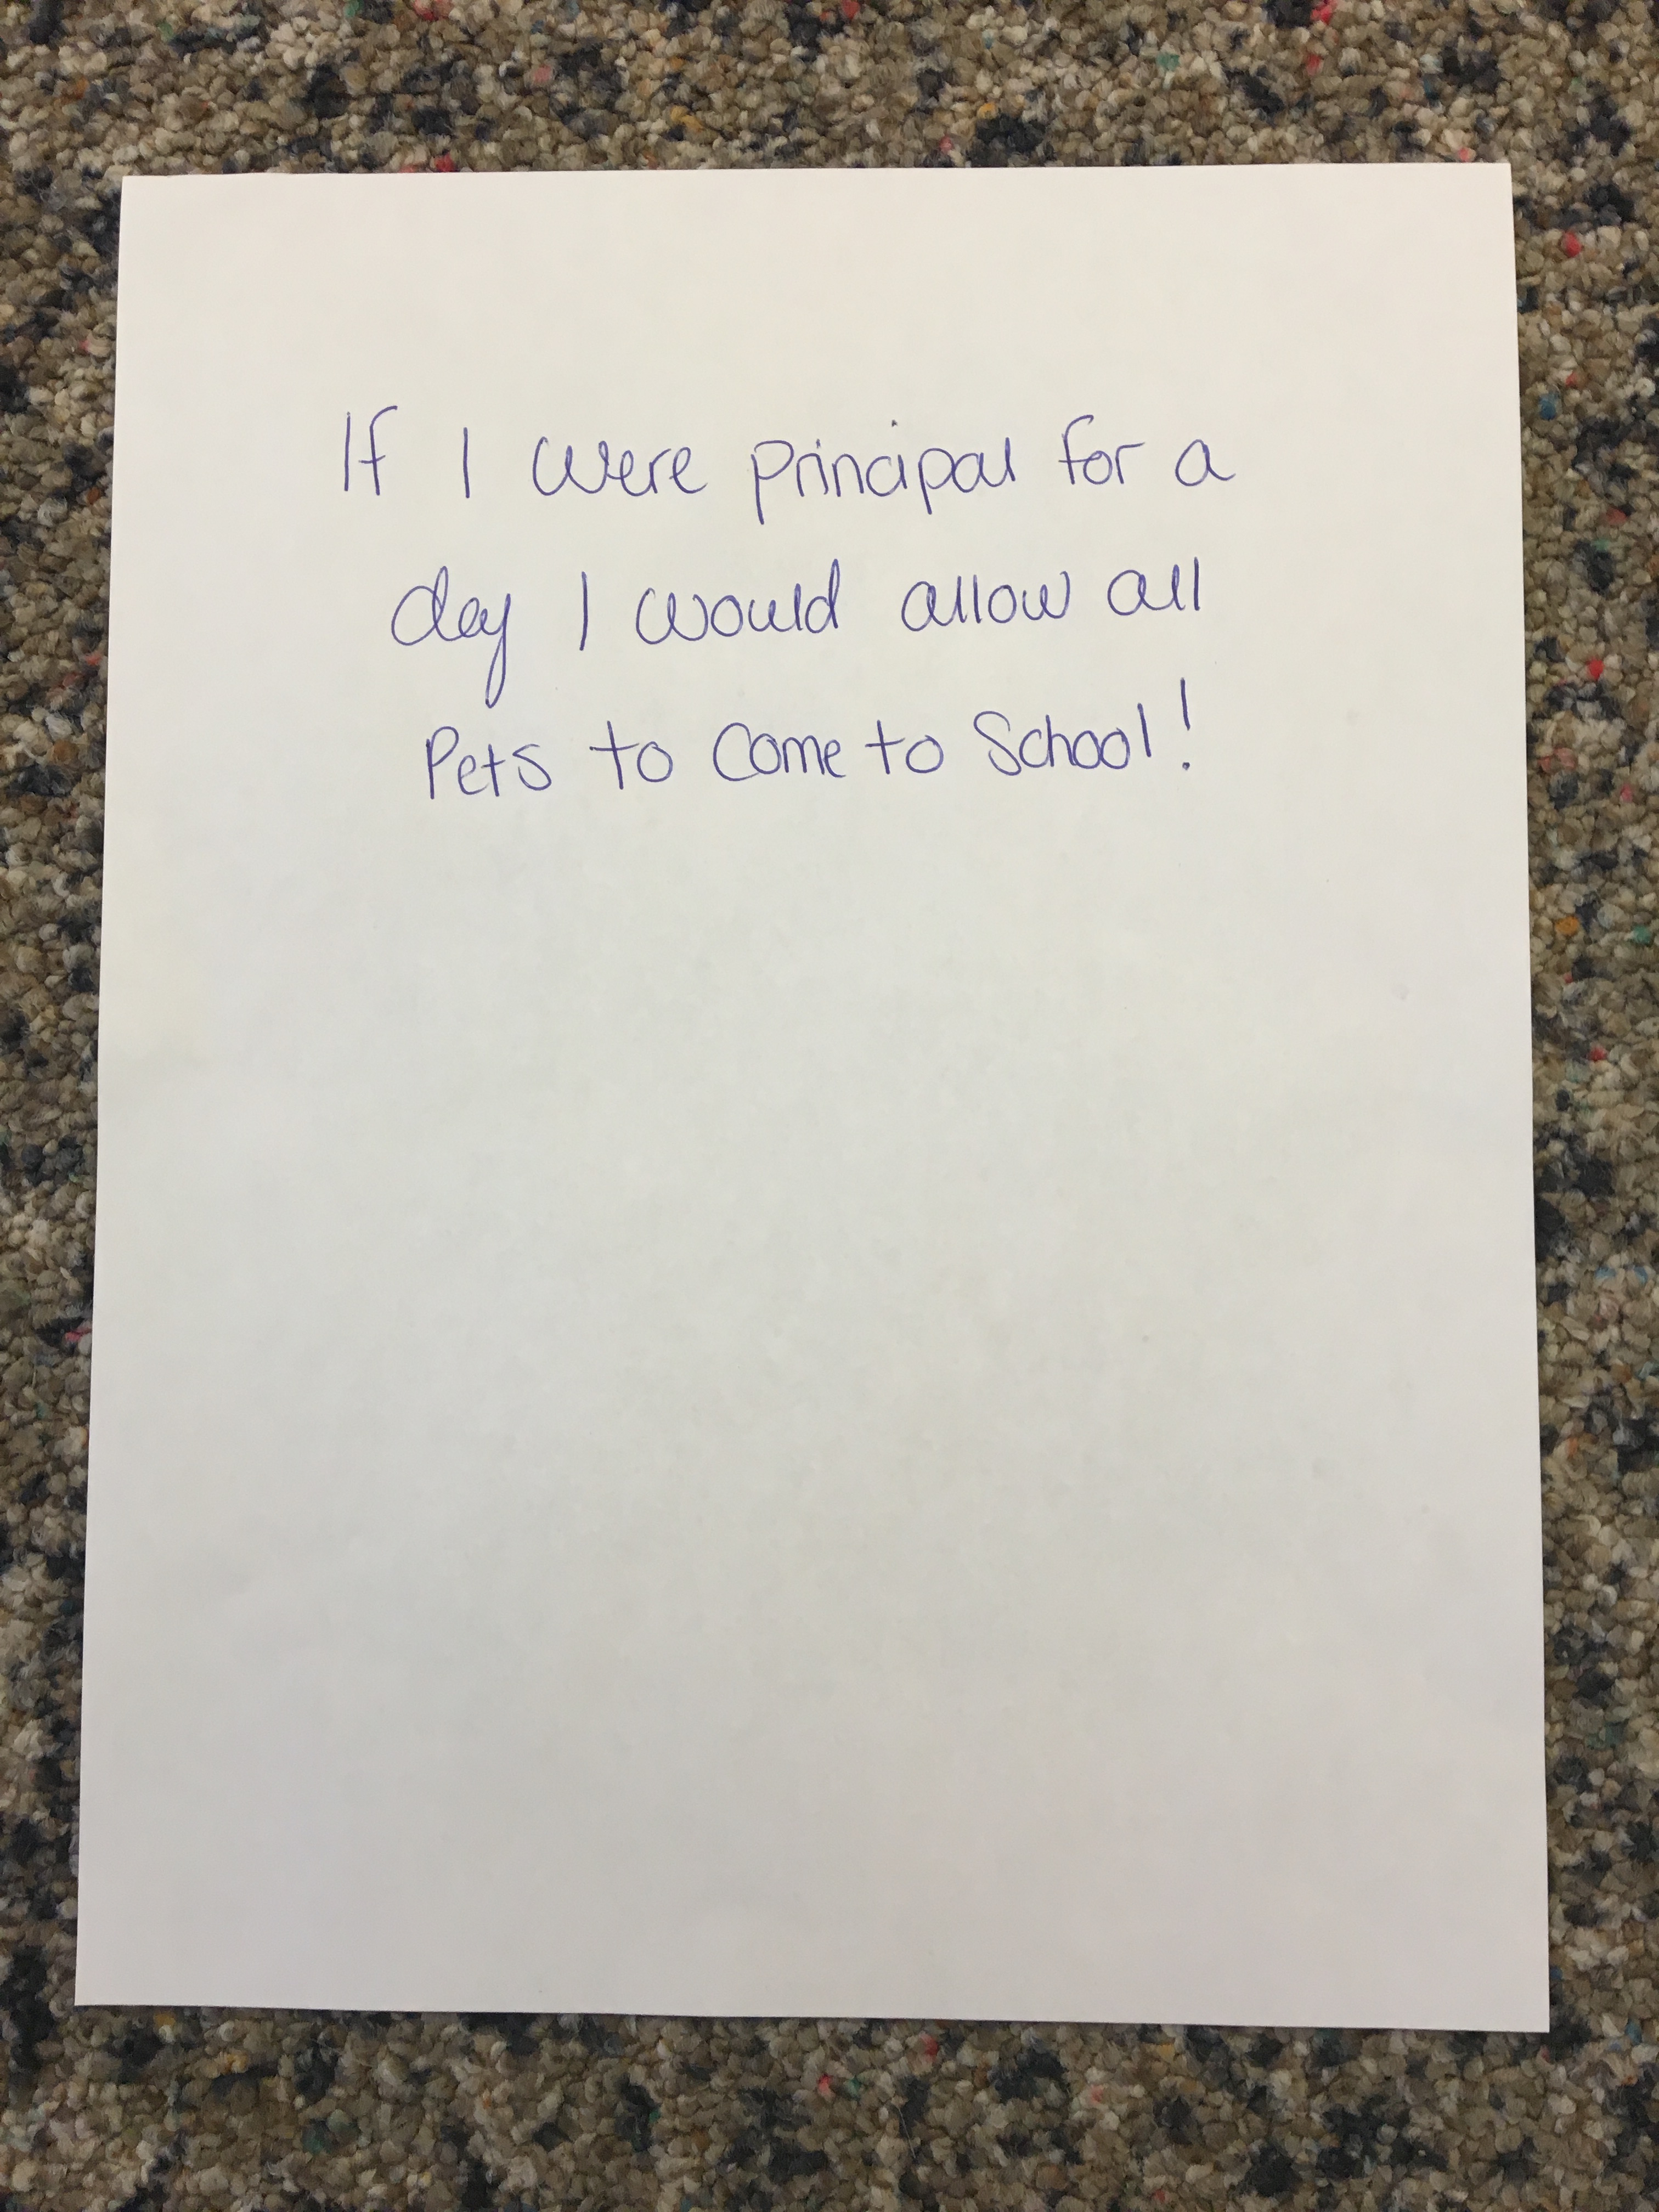 If I were principal for a
day I would allow all
Pets to Come to School!